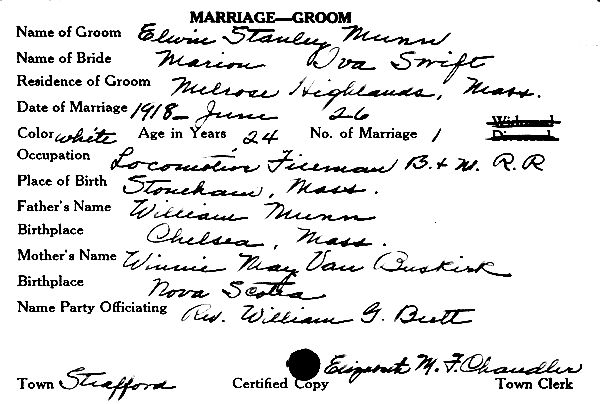 MARRIAGE—GROOM
Name of Groom Elwin Stanley Munn
Name of Bride Marion Iva Swift
Residence of Groom Melrose Highlands, Mass.
Date of Marriage 1918- June 26
Color white Age in Years 24 No. of Marriage 1 Widowed
Divorced
Occupation Locomotive Fireman B. & M. R.R
Place of Birth Stoneham, Mass.
Father's Name William Munn
Birthplace Chelsea, Mass.
Mother's Name Winnie May Van Buskirk
Birthplace Nova Scotia
Name Party Officiating Rev. William G. Brett
Elizabeth M. F. Chandler
Town Strafford Certified Copy Town Clerk